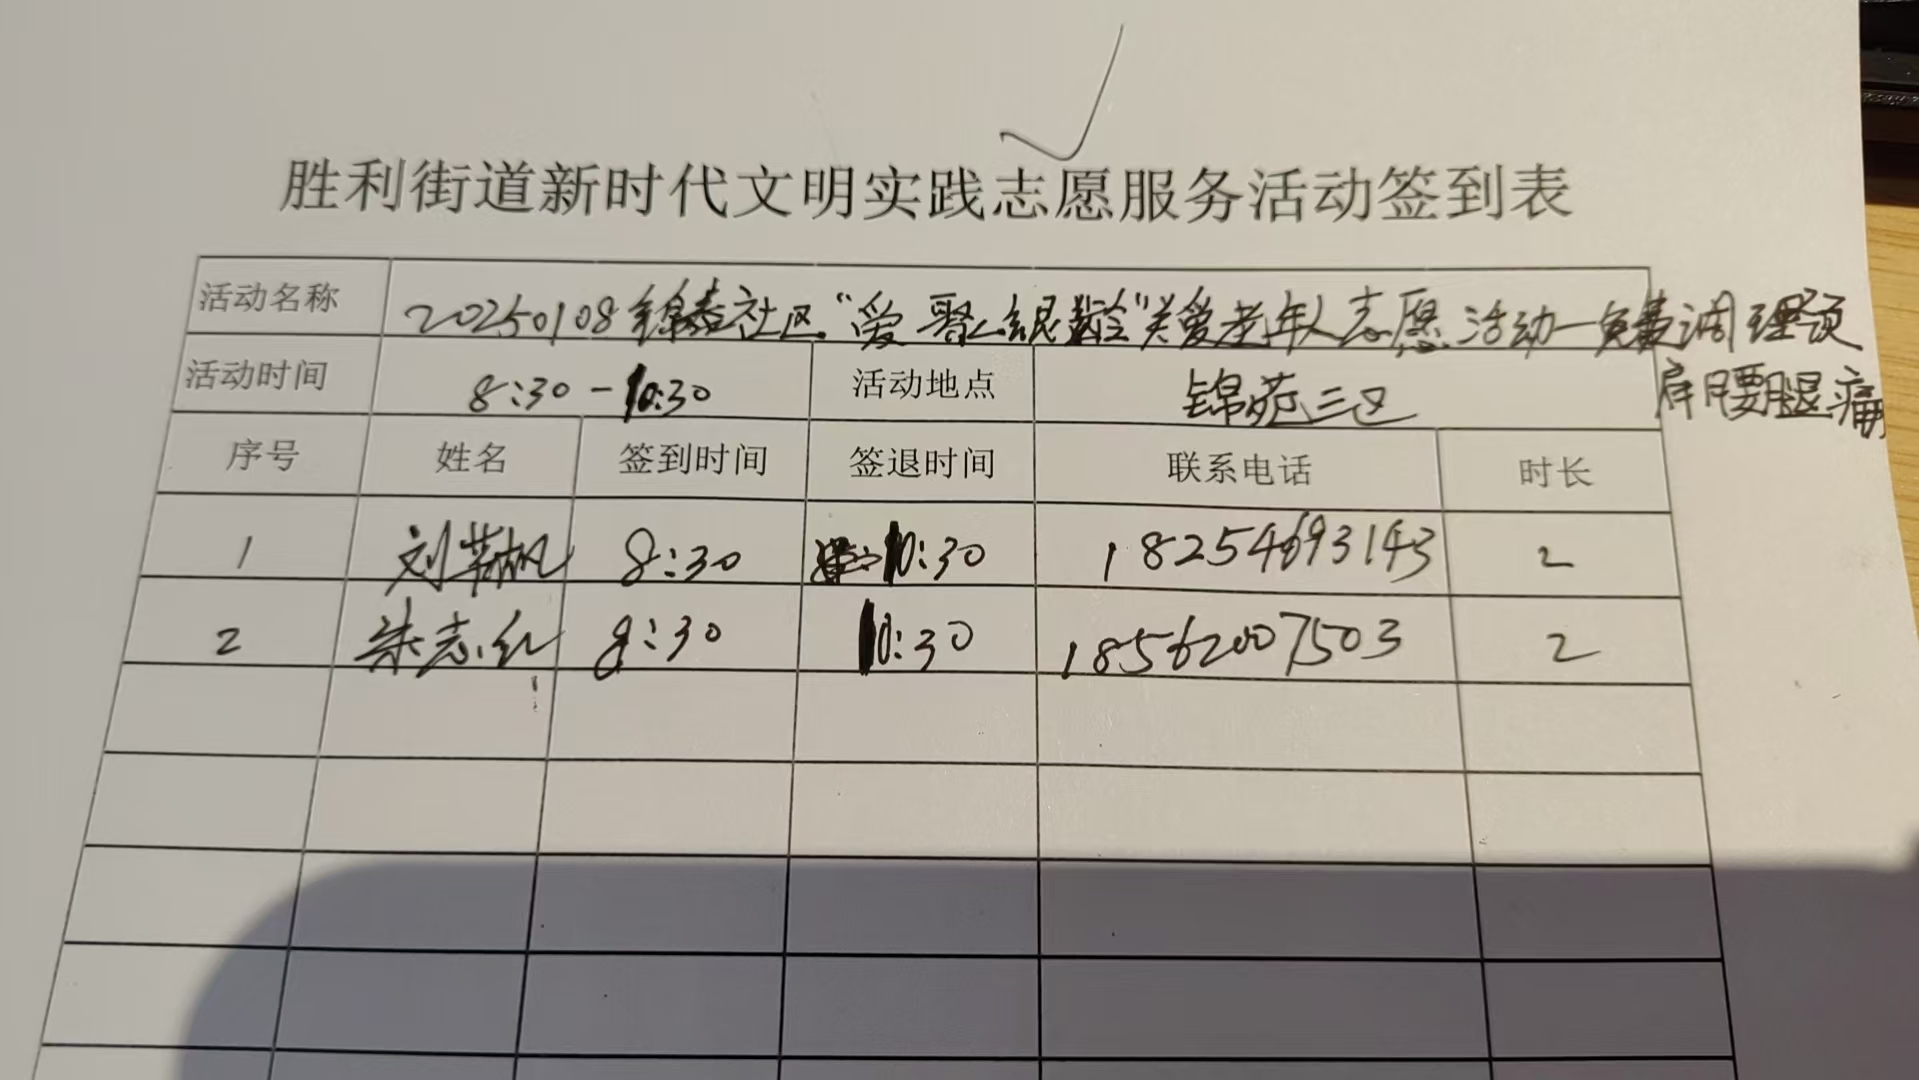 胜利街道新时代文明实践志愿服务活动签到表
活动名称 20250108锦泰社区“爱聚银龄”关爱老年人志愿活动—免费调理颈
肩腰腿痛
活动时间 8:30-10:30 活动地点 锦苑三区
序号 姓名 签到时间 签退时间 联系电话 时长
1 刘 8:30 10:30 18254693143 2
2 朱志红 8:30 10:30 18562007503 2